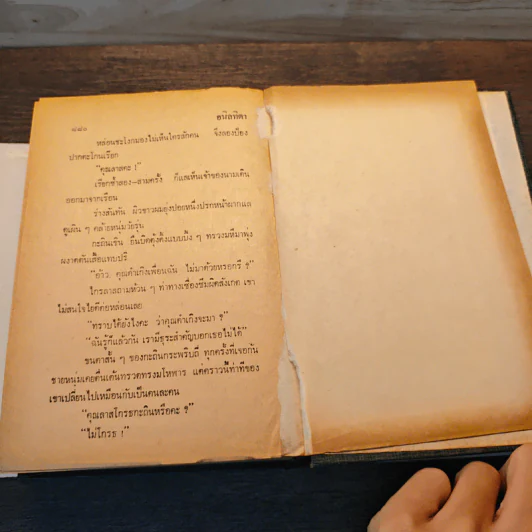 ๘๘๐ อนิลทิตา
หล่อนชะโงกมองไม่เห็นใครสักคน จึงลองป้อง
ปากตะโกนเรียก
“คุณลาสคะ !”
เรียกซ้ำสอง–สามครั้ง ก็แลเห็นเจ้าของนามเดิน
ออกมาจากเรือน
ร่างสันทัด ผิวขาวผมยุ่งปอยหนึ่งปรกหน้าผากแล
ดูเผิน ๆ คล้ายหนุ่มวัยรุ่น
กะถินเขิน ยืนบิดตุ้งติ้งแบบบัง ๆ ทรวงมหึมาพุ่ง
ผงาดดันเสื้อแทบปริ
“อ้าว คุณคำเกิงเพื่อนฉัน ไม่มาด้วยหรอกรึ ?”
ไกรลาสถามห้วน ๆ ท่าทางเซื่องซึมผิดสังเกต เขา
ไม่สนใจไยดีต่อหล่อนเลย
“ทราบได้ยังไงคะ ว่าคุณคำเกิงจะมา ?”
“ฉันรู้ก็แล้วกัน เรามีธุระสำคัญบอกเธอไม่ได้”
ขนตาสั้น ๆ ของกะถินกระพริบถี่ ทุกครั้งที่เจอกัน
ชายหนุ่มเคยตื่นเต้นทรวดทรงมโหฬาร แต่คราวนี้ท่าทีของ
เขาเปลี่ยนไปเหมือนกับเป็นคนละคน
“คุณลาสโกรธกะถินหรือคะ ?”
“ไม่โกรธ !”